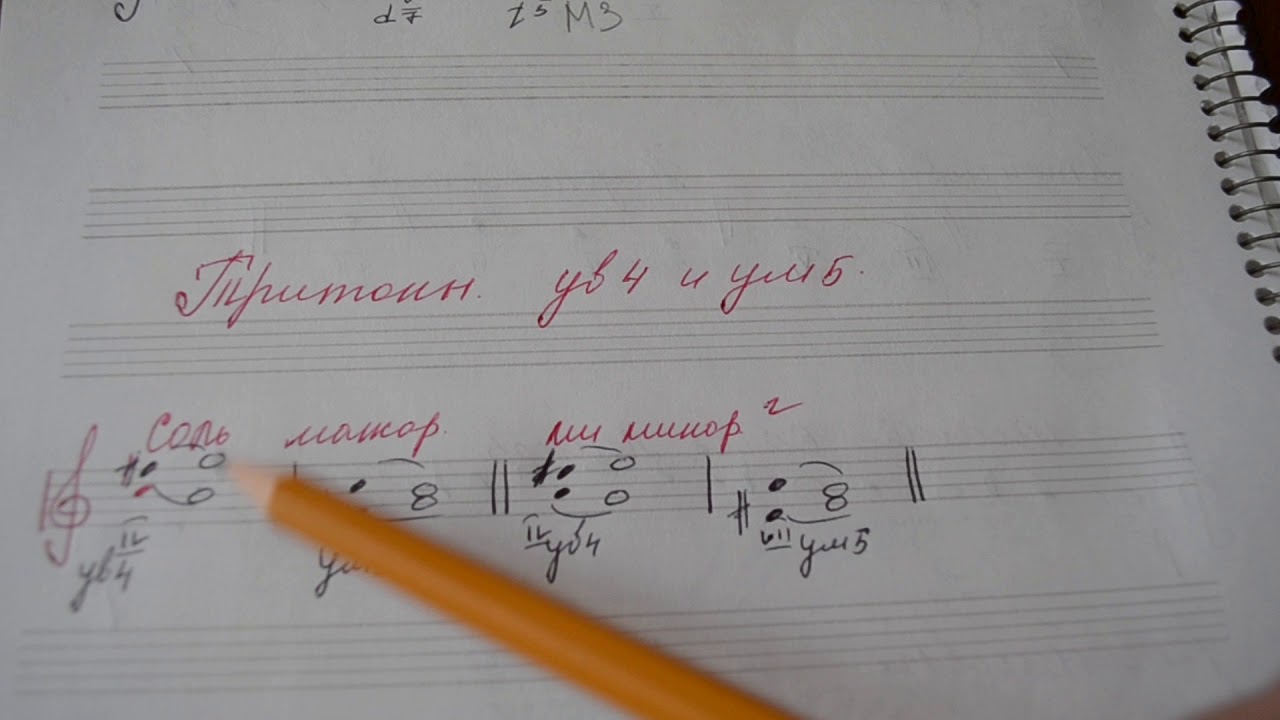 d 7 t 5 м3
Тритоны. ув4 и ум5.
Соль мажор. ми минор г
IV ув4 IV ув4 VII ум5